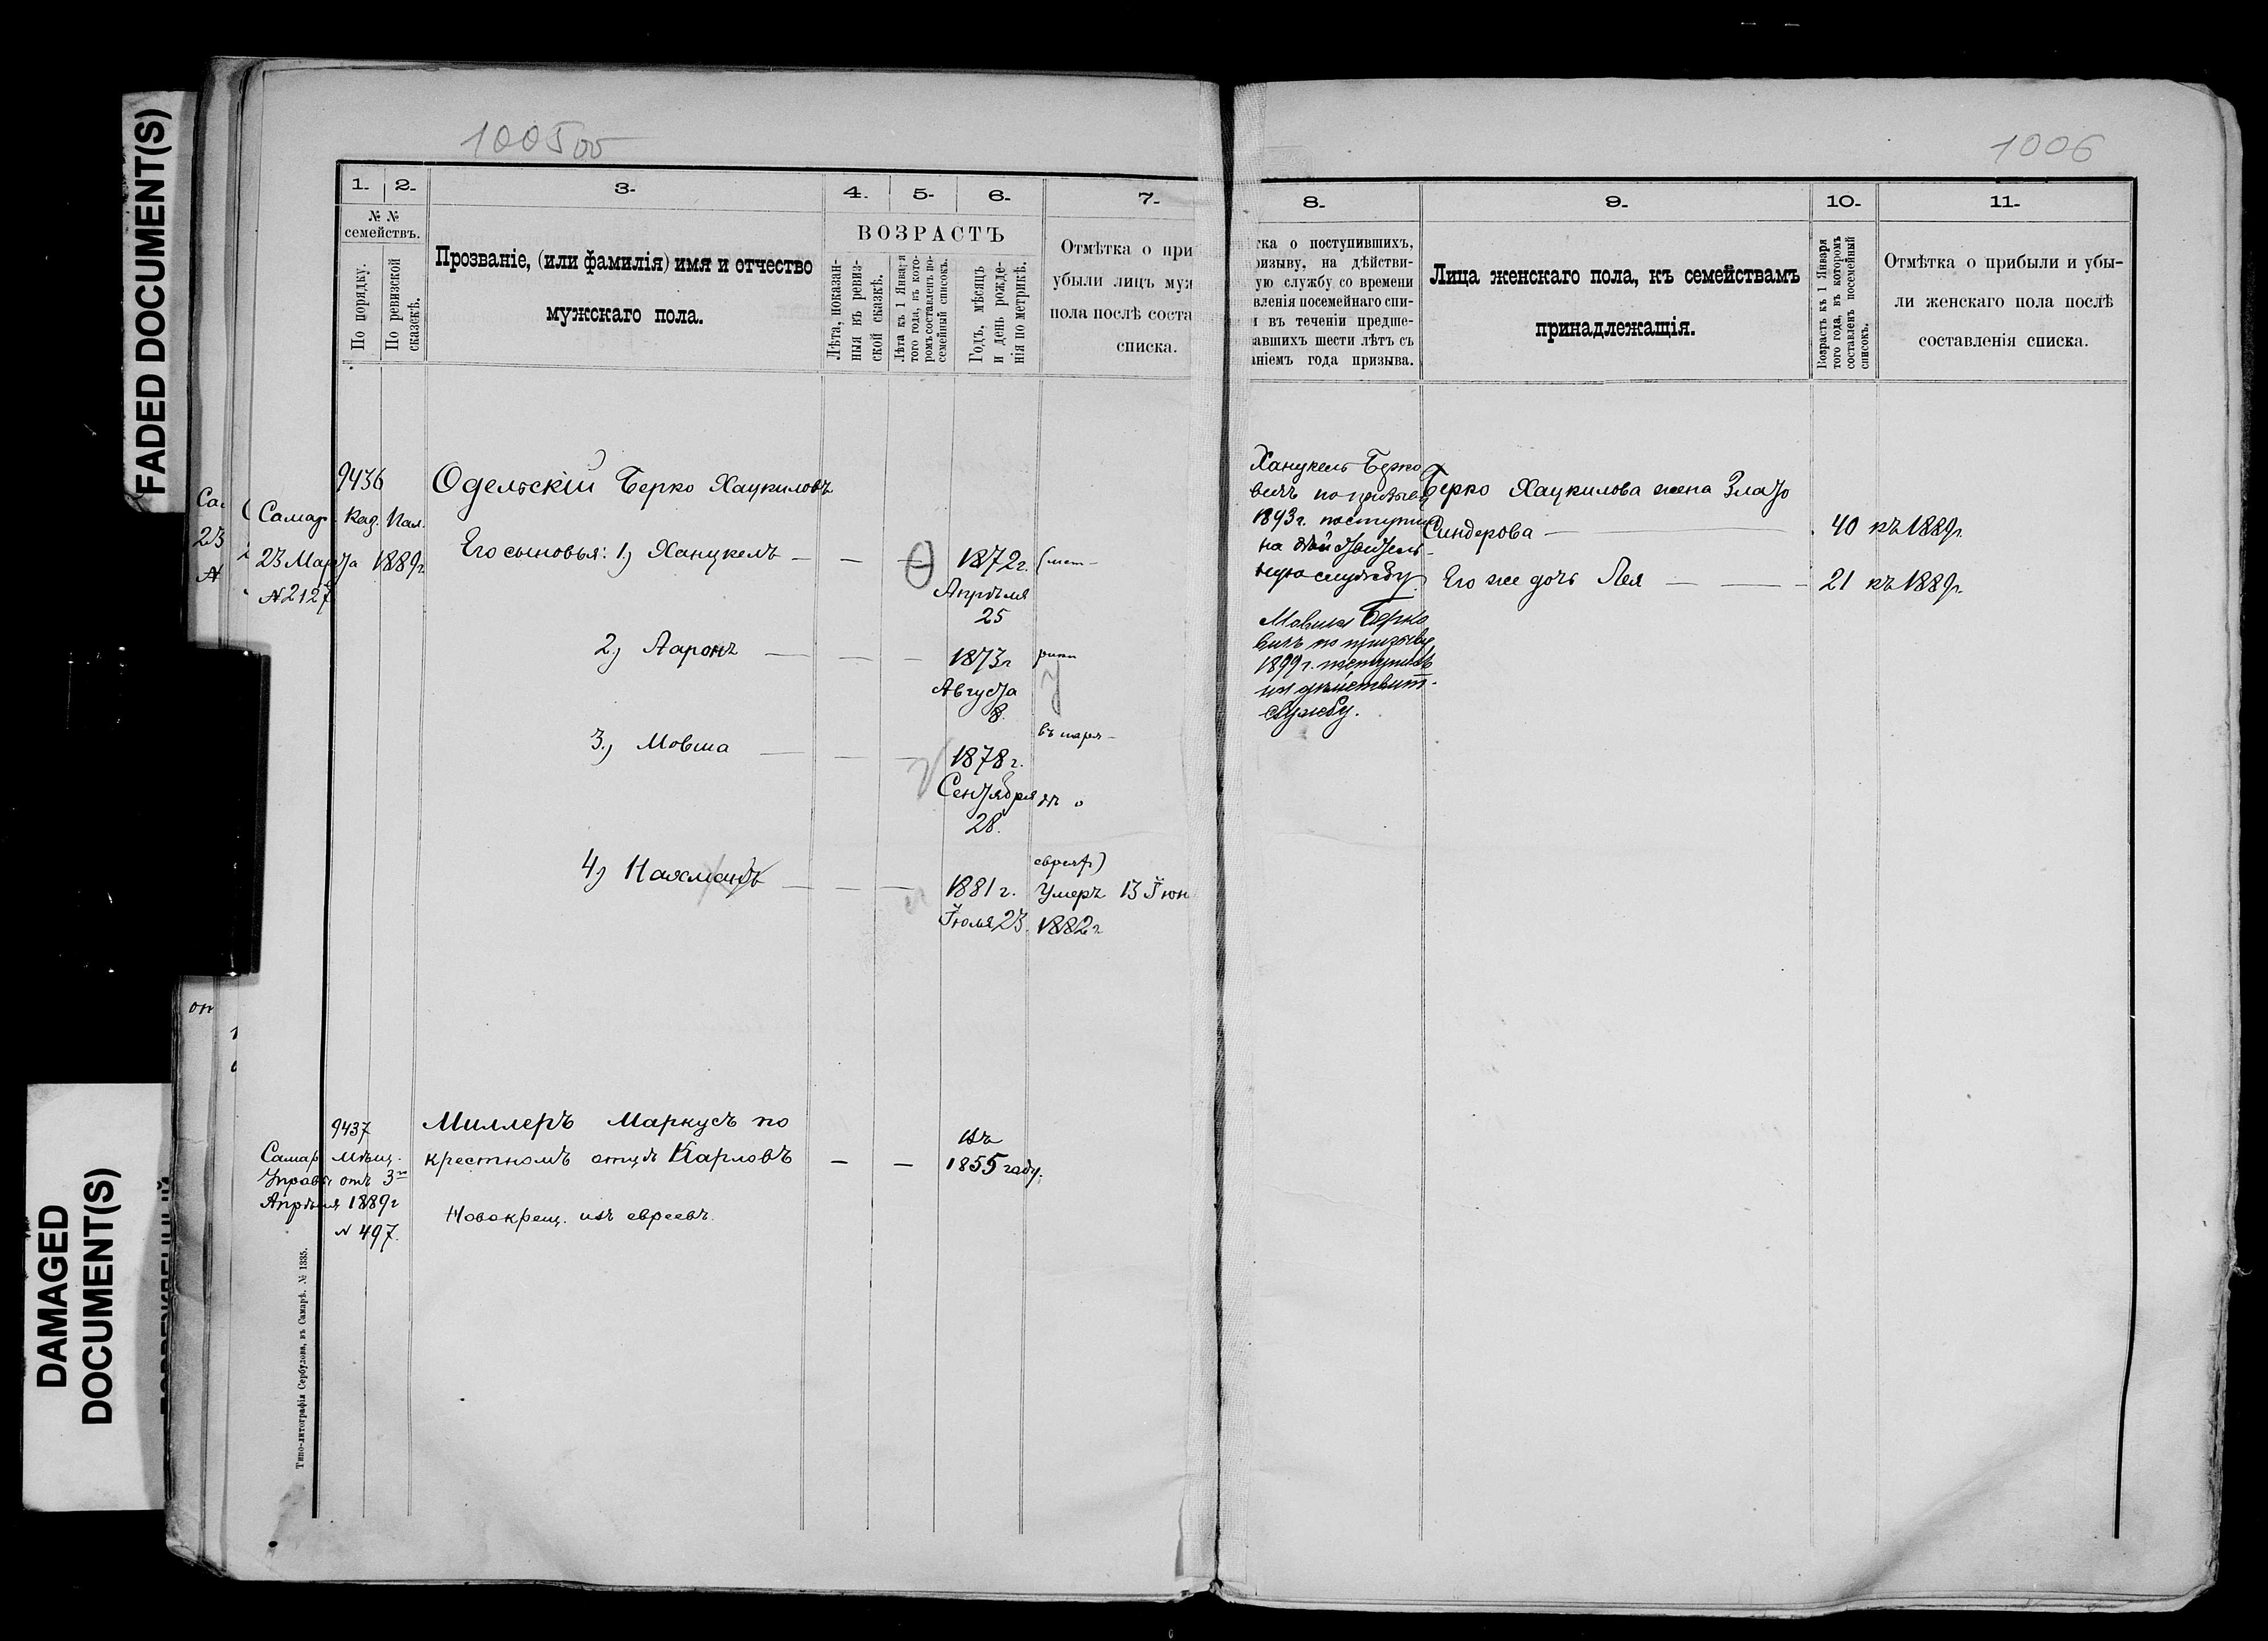 FADED DOCUMENT(S)
DAMAGED
DOCUMENT(S)
1005 об
1.
2.
3.
4.
5.
6.
7.
№ №
семействъ.
По порядку.
По ревизской
сказкѣ.
Прозваніе, (или фамилія) имя и отчество
мужскаго пола.
ВОЗРАСТЪ
Лѣта, показан-
ныя въ ревиз-
ской сказкѣ.
Лѣта къ 1 Января
того года, въ кото-
ромъ составленъ по-
семейный списокъ.
Годъ, мѣсяцъ
и день рожде-
нія по метрикѣ.
Отмѣтка о при
убыли лицъ муж
пола послѣ соста
списка.
9436
Самар. Каз. Пал.
23 Марта 1889г.
№ 2127
Одельскій Берко Хацкиловъ
Его сыновья: 1) Ханцкель
1872г. (мет-
Апрѣля
25
2) Ааронъ
1873г рики
Августа
8.
3) Мовша
въ
1878г.
Сентября
28.
4) Нахманъ
евреяхъ)
1881г. Умеръ 13 Іюн
Іюля 23. 1882г
9437
Самар. Мѣщ.
Управы отъ 3го
Апрѣля 1889г
№ 497.
Миллеръ Маркусъ по
крестномъ отцѣ Карловъ
въ
1855 году.
Новокрещ. изъ евреевъ.
Типо-литографія Сербулова, въ Самарѣ. № 1335.
1006
8.
9.
10.
11.
тка о поступившихъ,
ризыву, на дѣйстви-
ую службу со времени
вленія посемейнаго спи-
и въ теченіи предше-
авшихъ шести лѣтъ съ
аніемъ года призыва.
Лица женскаго пола, къ семействамъ
принадлежащія.
Возрастъ къ 1 Января
того года, въ которомъ
составленъ посемейный
списокъ.
Отмѣтка о прибыли и убы-
ли женскаго пола послѣ
составленія списка.
Ханцкель Берко
вичъ по призыву
1893г. поступилъ
на дѣйствитель-
ную службу.
Мовша Берко
вичъ по призыву
1899г. поступилъ
на дѣйствит.
службу.
Берко Хацкилова жена Злато
Синдерова 40 къ 1889г.
Его же дочь Лея 21 къ 1889г.